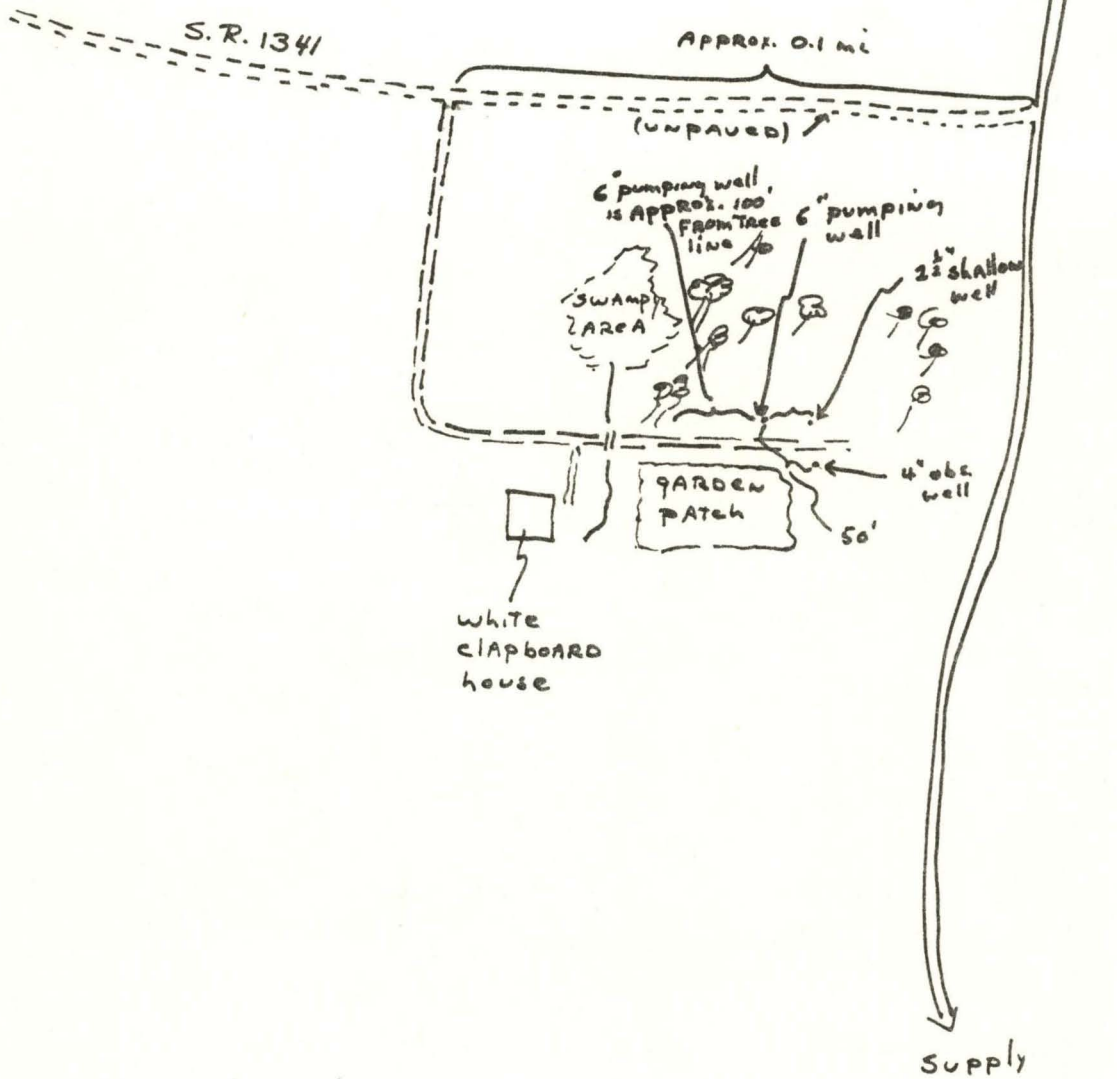 S.R. 1341
APPROX. 0.1 mi
(UNPAVED)
6" pumping well
is APPROX. 100'
FROM TREE
line
6" pumping
well
shallow
well
SWAMP
AREA
4" obs.
well
GARDEN
PATCH
50'
white
clAPboARD
house
Supply